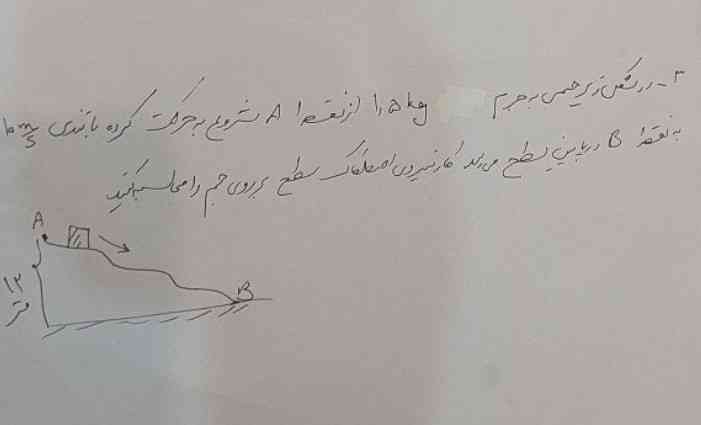 ۳- در شکل زیر جسمی به جرم ۱٫۵ kg از نقطه A شروع به حرکت کرده با تندی ۱۰ m/s
به نقطه B در پایین سطح می‌رسد کار نیروی اصطکاک سطح بر روی جسم را محاسبه کنید
A
B
۱۲
متر